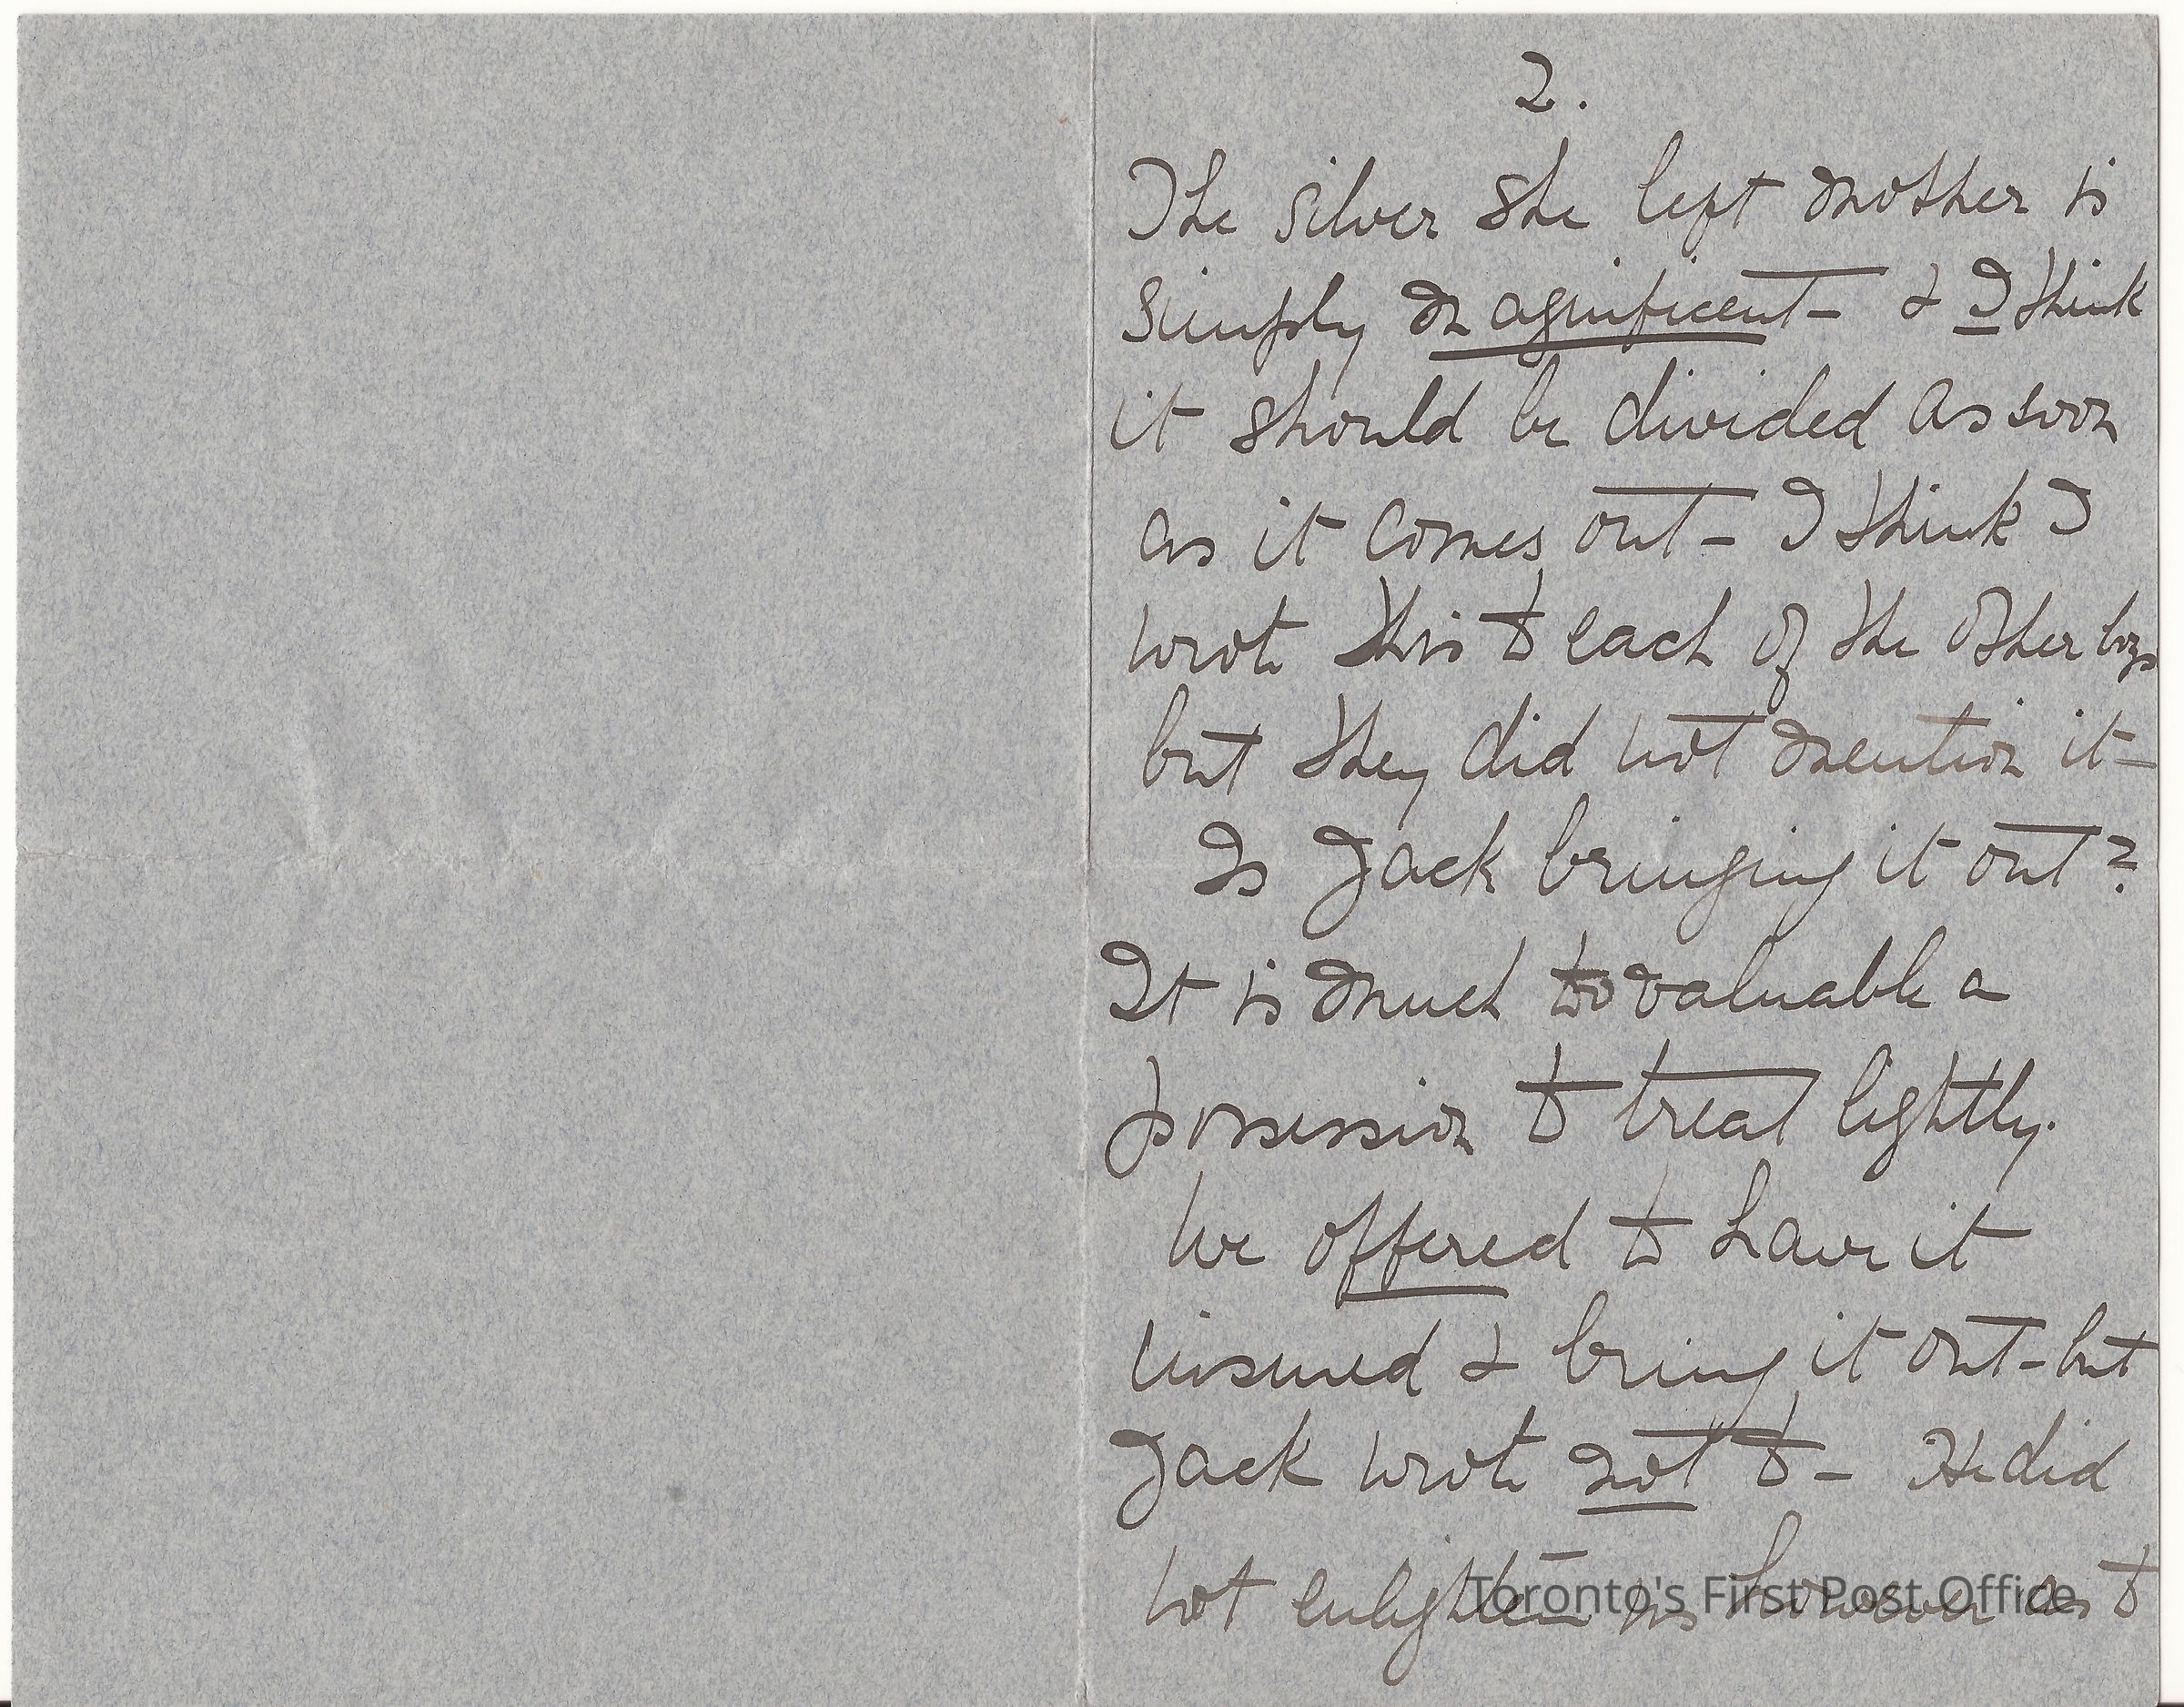 2.
The silver she left mother is
simply magnificent - & I think
it should be divided as soon
as it comes out - I think I
wrote this to each of the other boys
but they did not mention it -
Is Jack bringing it out?
It is much too valuable a
possession to treat lightly.
We offered to have it
insured & bring it out - but
Jack wrote not to - He did
not enlighten us however as to
Toronto's First Post Office